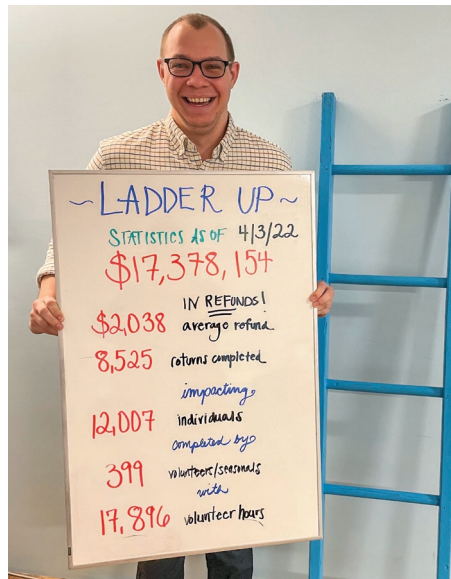 ~LADDER UP~
STATISTICS AS OF 4/3/22
$17,378,154
IN REFUNDS!
$2,038 average refund
8,525 returns completed
impacting
12,007 individuals
completed by
399 volunteers/seasonals
with
17,896 volunteer hours